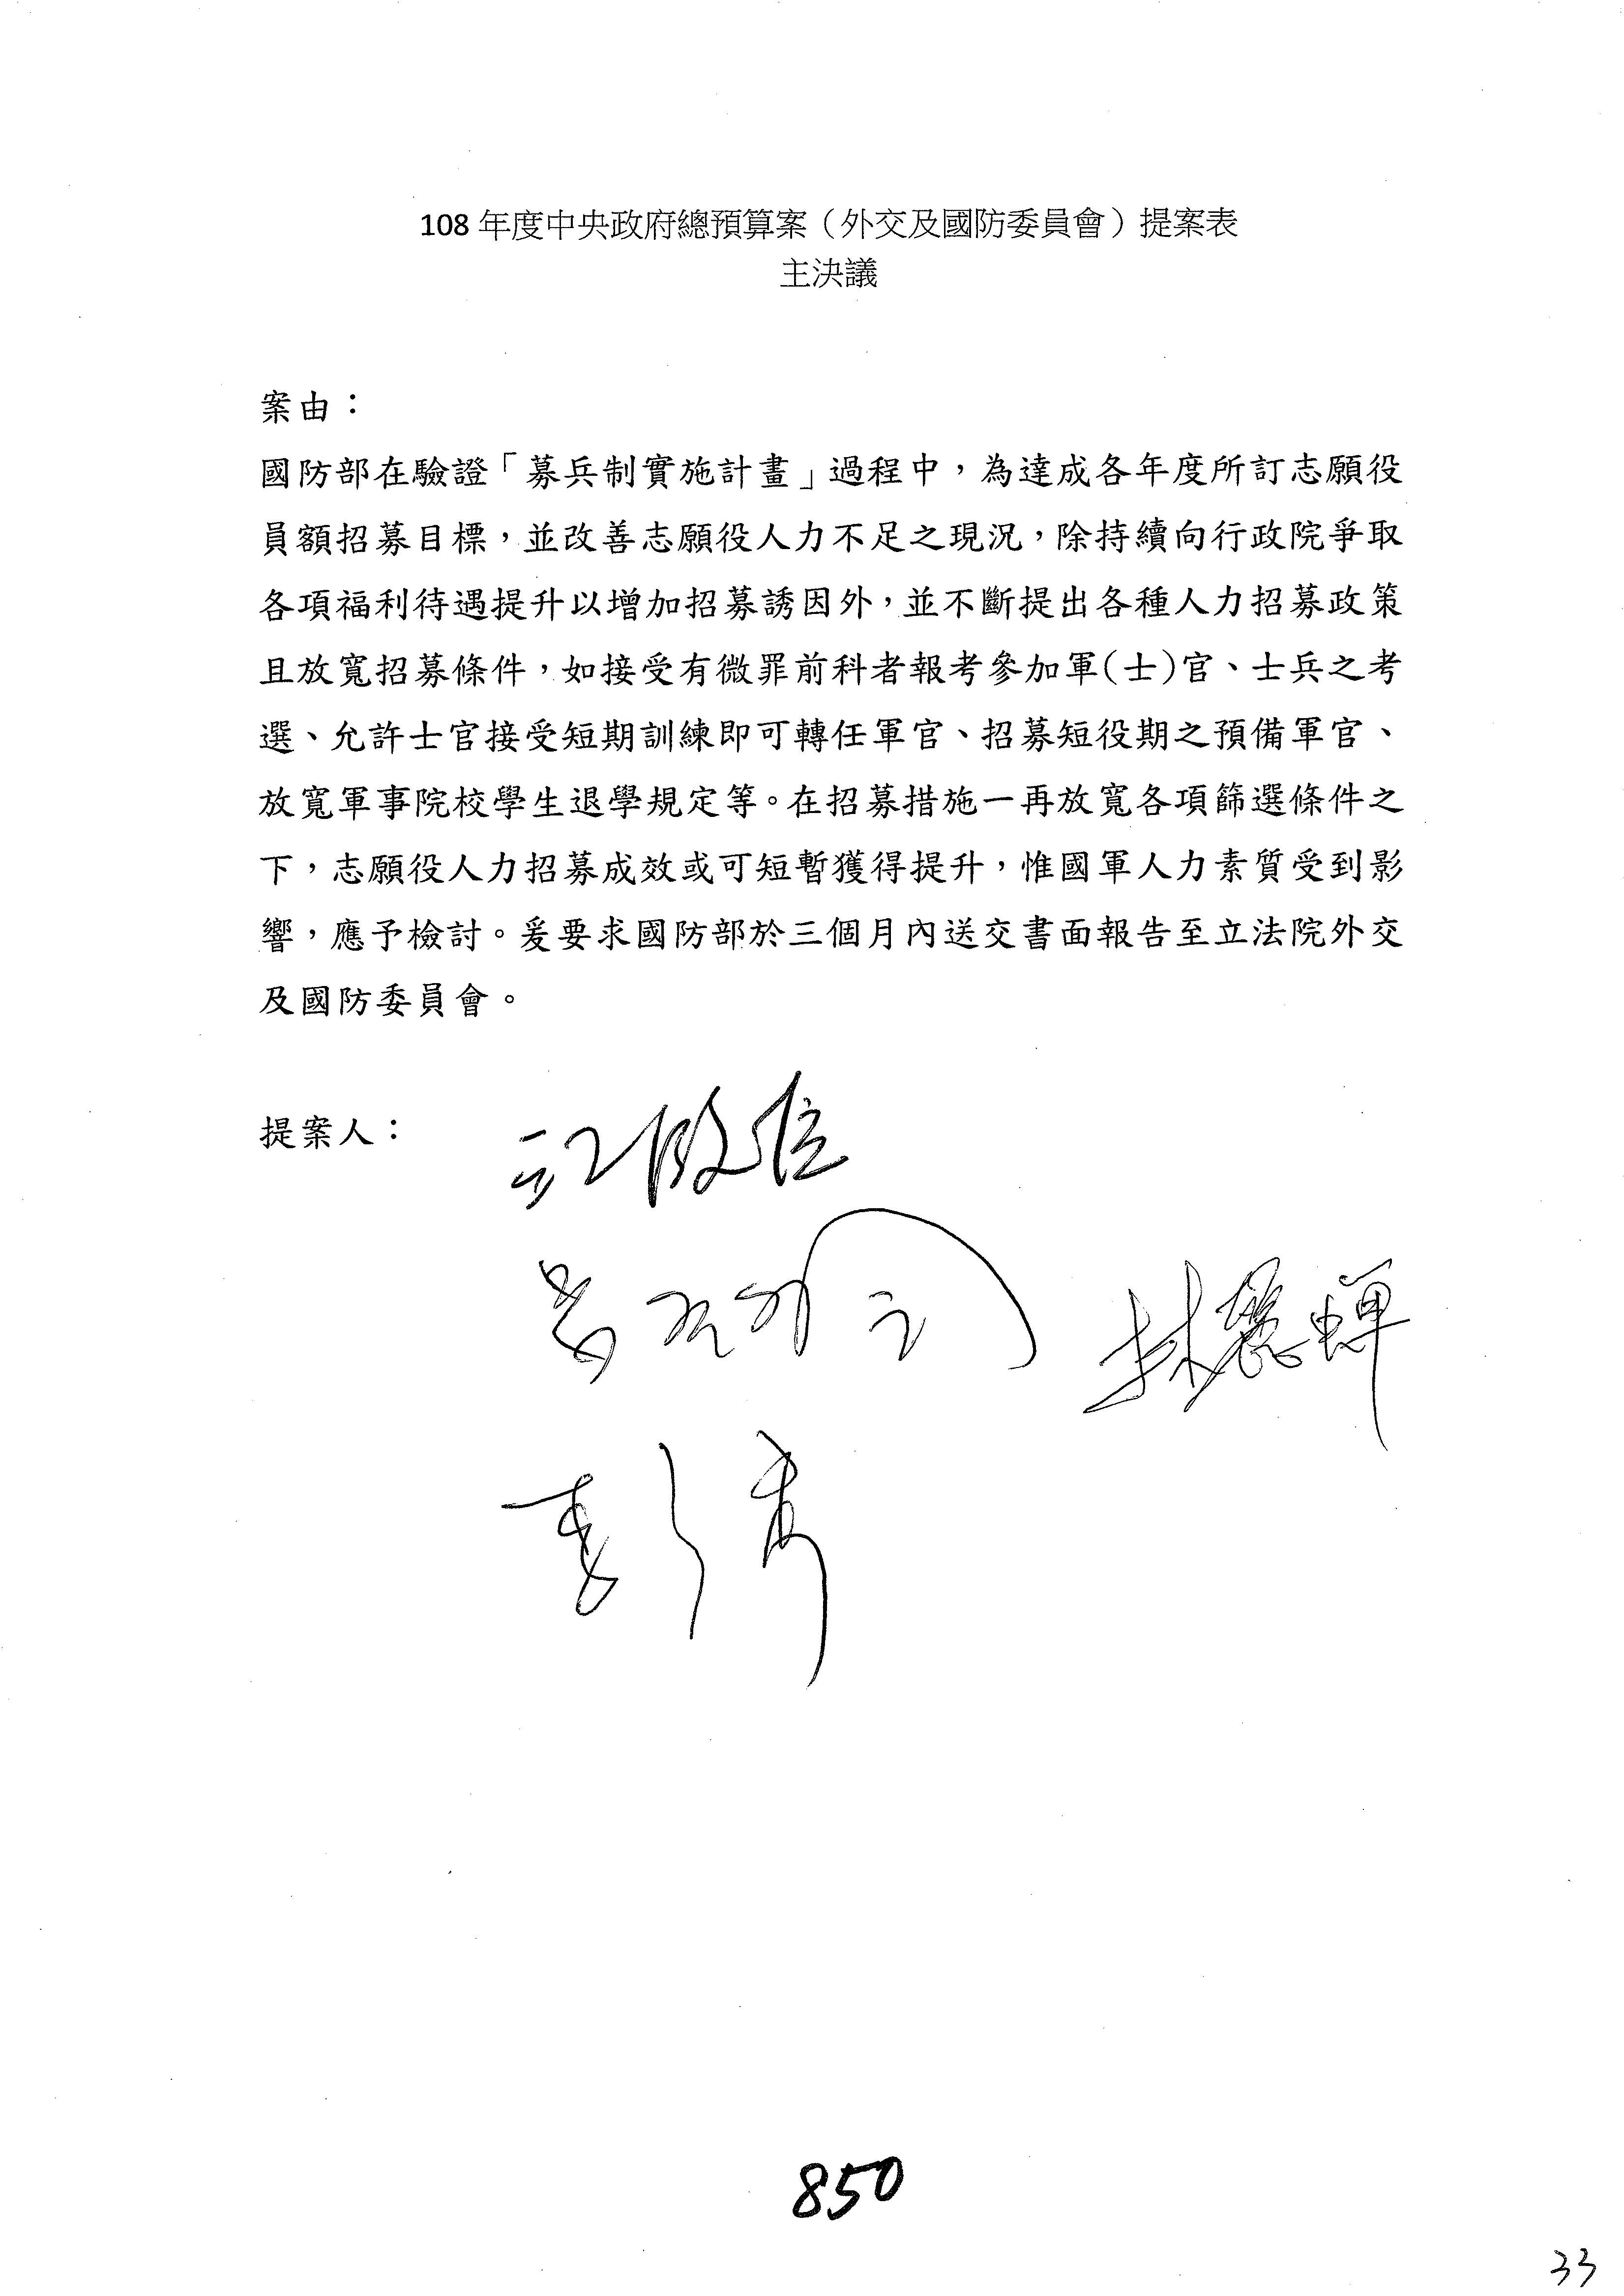 108 年度中央政府總預算案（外交及國防委員會）提案表
主決議
案由：
國防部在驗證「募兵制實施計畫」過程中，為達成各年度所訂志願役
員額招募目標，並改善志願役人力不足之現況，除持續向行政院爭取
各項福利待遇提升以增加招募誘因外，並不斷提出各種人力招募政策
且放寬招募條件，如接受有微罪前科者報考參加軍(士)官、士兵之考
選、允許士官接受短期訓練即可轉任軍官、招募短役期之預備軍官、
放寬軍事院校學生退學規定等。在招募措施一再放寬各項篩選條件之
下，志願役人力招募成效或可短暫獲得提升，惟國軍人力素質受到影
響，應予檢討。爰要求國防部於三個月內送交書面報告至立法院外交
及國防委員會。
提案人：
江啟臣
林麗蟬
850
33